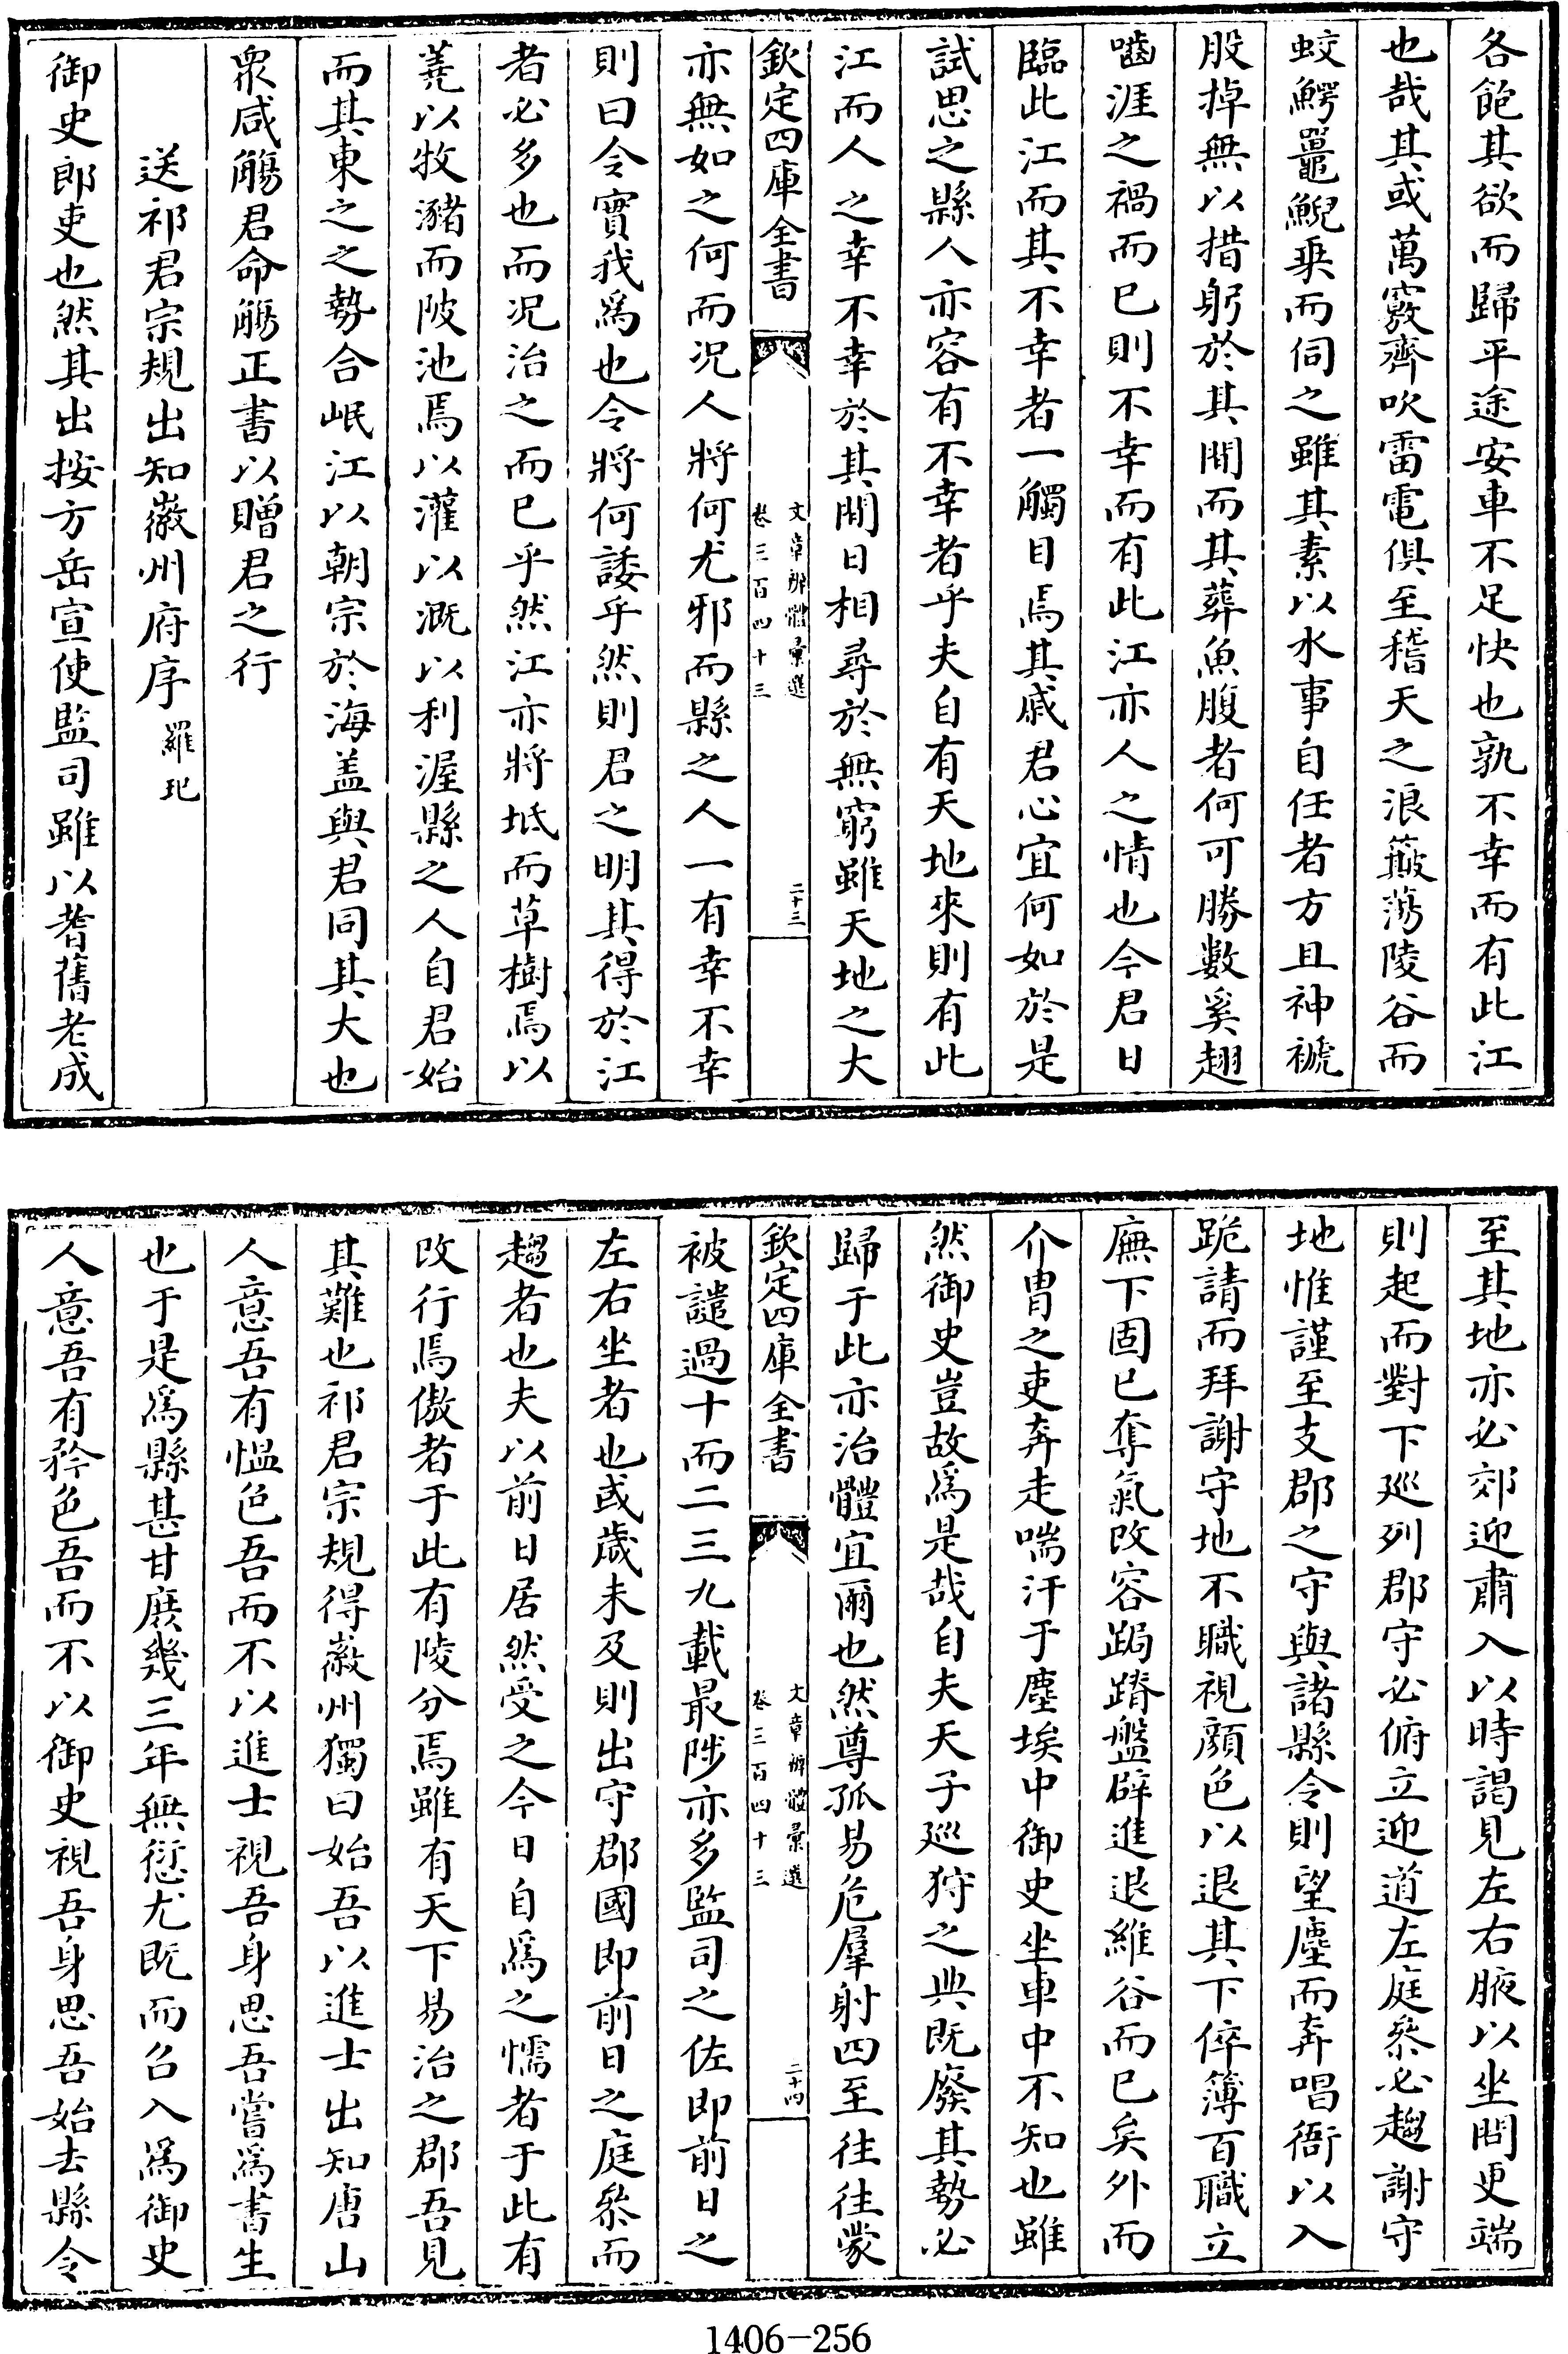 各飽其欲而歸平途安車不足快也孰不幸而有此江
也哉其或萬竅齊吹雷電俱至稽天之浪簸蕩陵谷而
蛟鰐鼉鯢乗而伺之雖其素以水事自任者方且神褫
股掉無以措躬於其間而其葬魚腹者何可勝數奚翅
囓涯之禍而已則不幸而有此江亦人之情也今君日
臨此江而其不幸者一觸目焉其戚君心宜何如於是
試思之縣人亦容有不幸者乎夫自有天地來則有此
江而人之幸不幸於其間日相尋於無窮雖天地之大
欽定四庫全書
文章辨體彙選
卷三百四十三
二十三
亦無如之何而况人將何尤邪而縣之人一有幸不幸
則曰令實我爲也令將何諉乎然則君之明其得於江
者必多也而况治之而已乎然江亦將坻而草樹焉以
蕘以牧瀦而陂池焉以灌以溉以利渥縣之人自君始
而其東之之勢合岷江以朝宗於海盖與君同其大也
衆咸觴君命觴正書以贈君之行
送祁君宗規出知徽州府序 羅玘
御史郎吏也然其出按方岳宣使監司雖以耆舊老成
至其地亦必郊迎肅入以時謁見左右腋以坐問更端
則起而對下廵列郡守必俯立迎道左庭叅必趨謝守
地惟謹至支郡之守與諸縣令則望塵而奔唱衙以入
跪請而拜謝守地不職視顔色以退其下倅簿百職立
廡下固已奪氣改容跼蹐盤辟進退維谷而已矣外而
介胄之吏奔走喘汗于塵埃中御史坐車中不知也雖
然御史豈故爲是哉自夫天子廵狩之典既廢其勢必
歸于此亦治體宜爾也然尊孤易危羣射四至往往蒙
欽定四庫全書
文章辨體彙選
卷三百四十三
二十四
被譴過十而二三九載最陟亦多監司之佐即前日之
左右坐者也或歳未及則出守郡國即前日之庭叅而
趨者也夫以前日居然受之今日自爲之懦者于此有
改行焉傲者于此有陵分焉雖有天下易治之郡吾見
其難也祁君宗規得徽州獨曰始吾以進士出知唐山
人意吾有愠色吾而不以進士視吾身思吾嘗爲書生
也于是爲縣甚甘庻幾三年無愆尤既而召入爲御史
人意吾有矜色吾而不以御史視吾身思吾始去縣令
1406-256